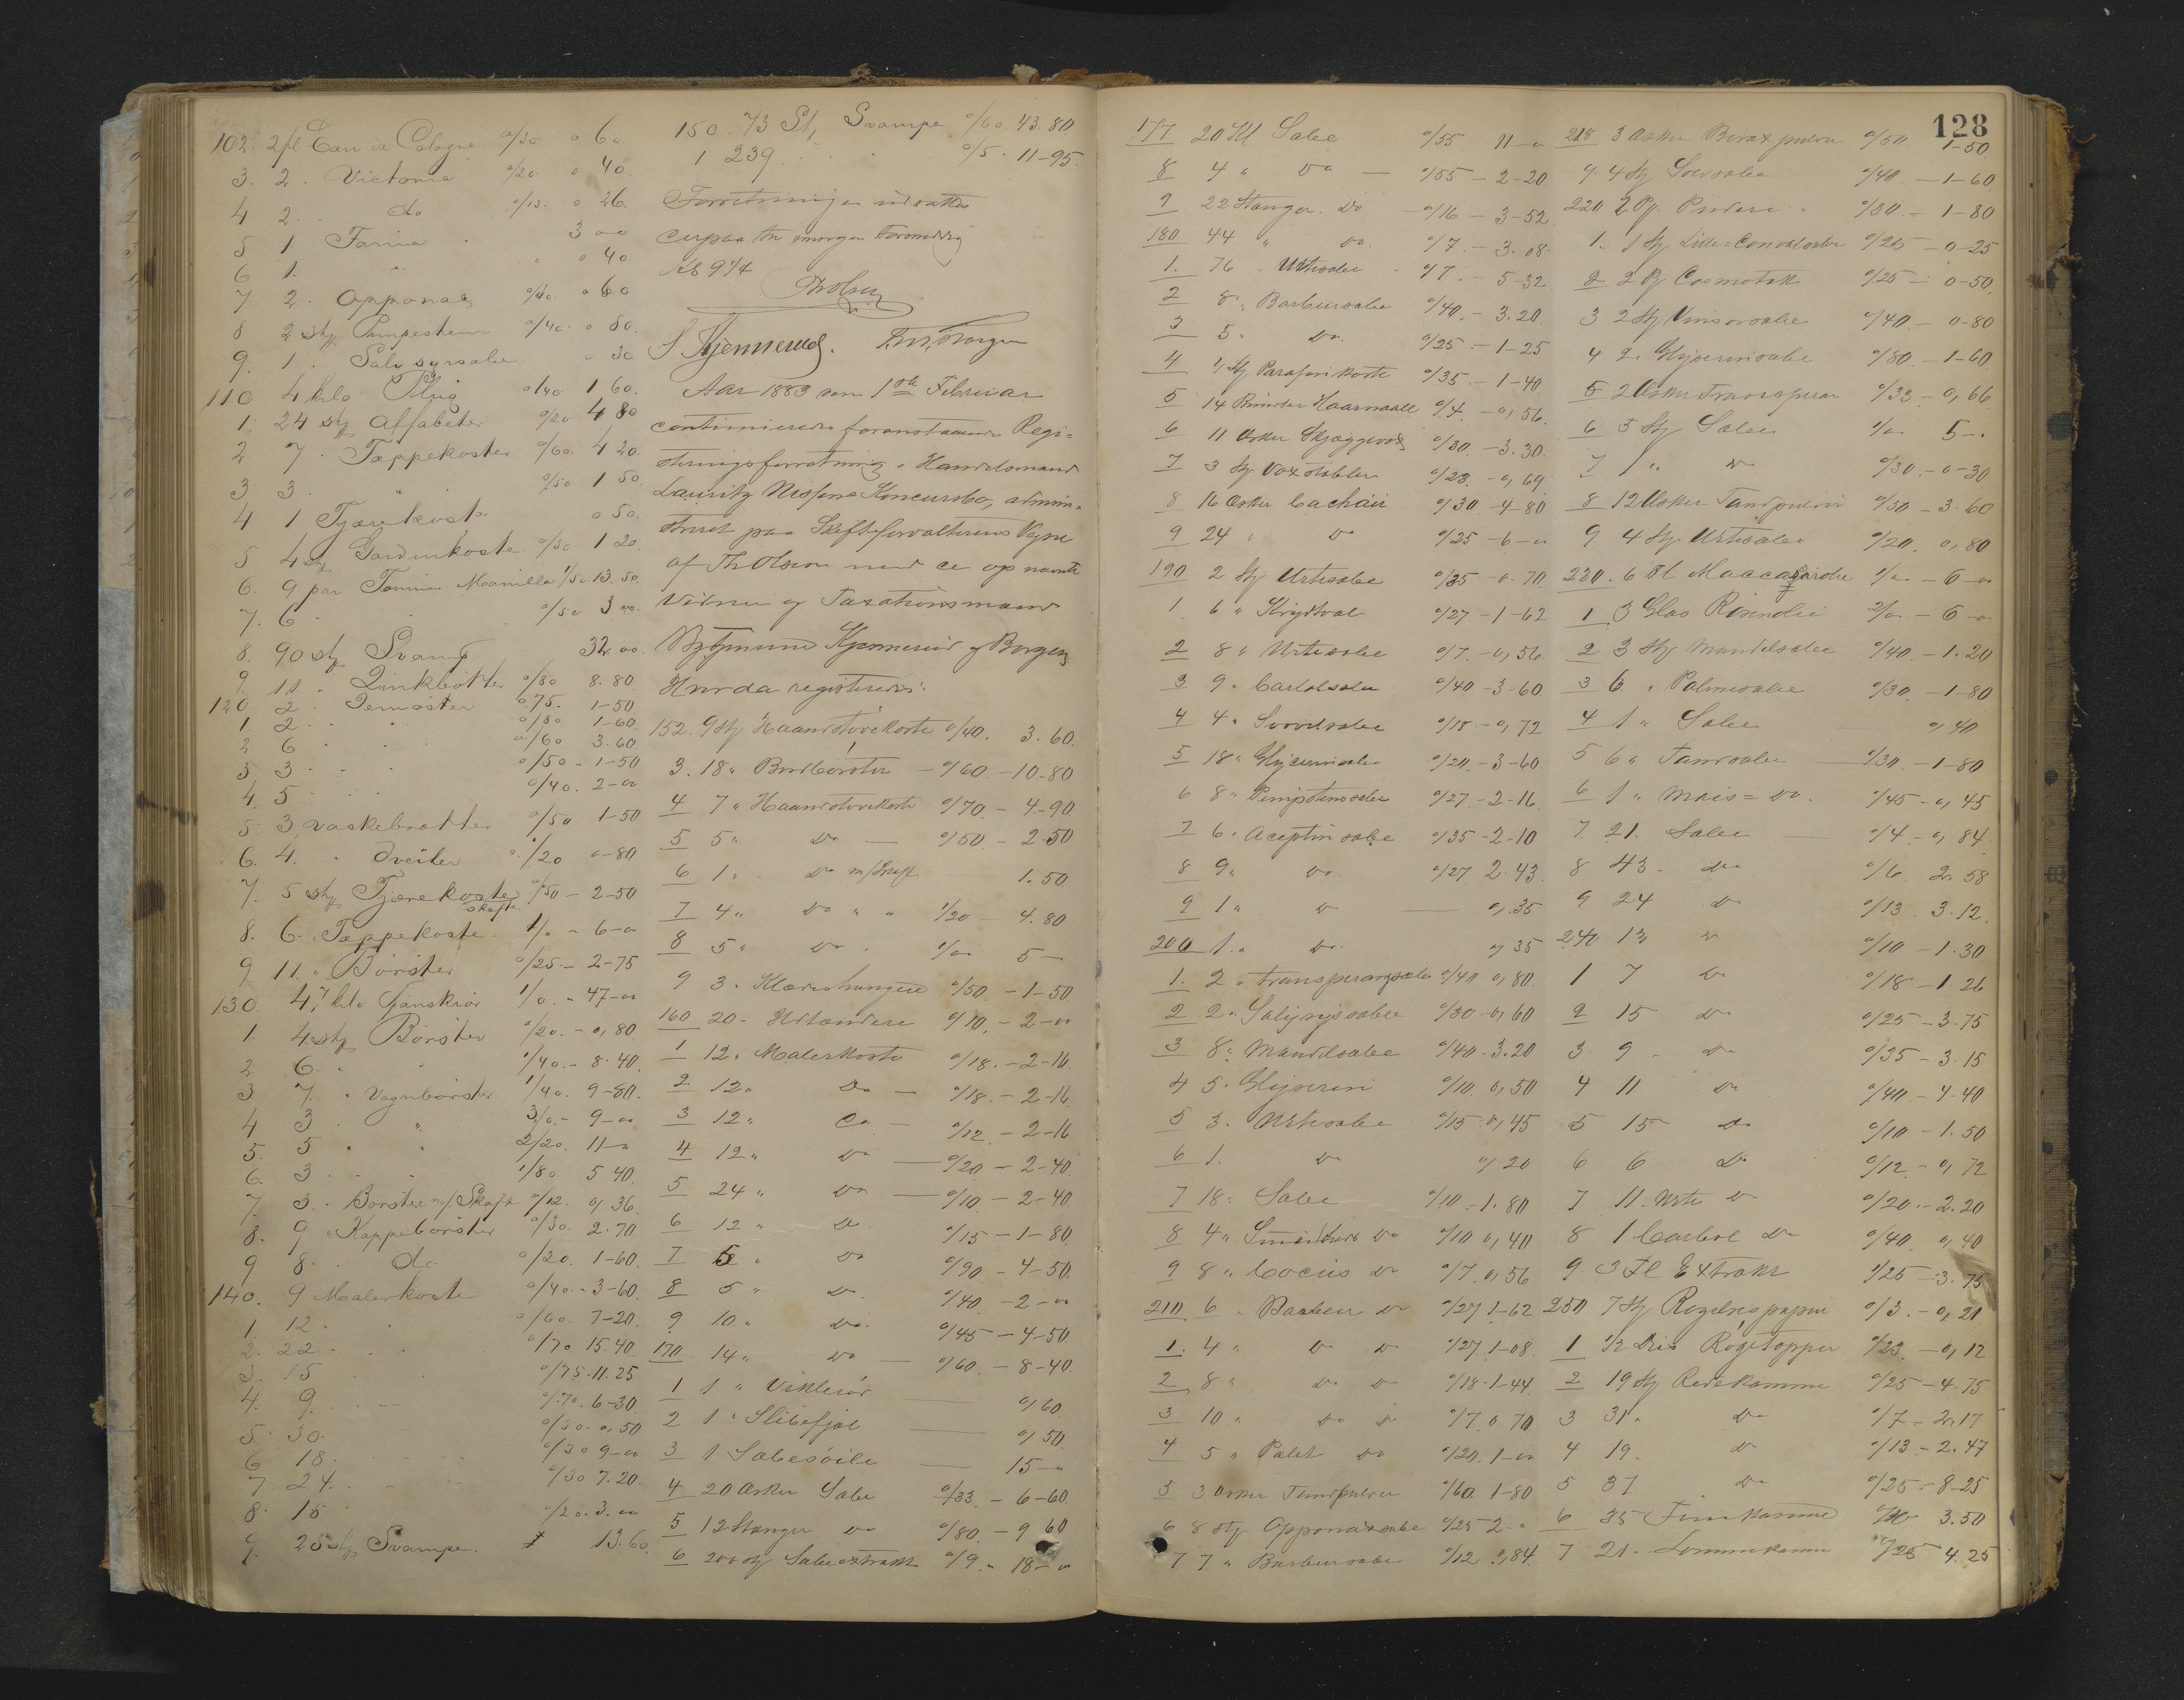 102. 2 fl Eau de Cologne 0/30 0 60
3. 2 . Victoria 0/20 0 40
4 2 . do 0/13. 0 26
5 1 Farina 3 00
6 1. " 0 40
7 2 . Opponax 0/30 0 60
8 2 stk Pimpesteen 0/40. 0 80.
9. 1 . 0 30
110 4 kilo 0/40 1 60.
1. 24 stk Alfabeter 0/20 4 80
2 7 . Tæppekoster 0/60. 4 20
3 3 . " 0/50 1 50
4 1 Tjærekost 0 50.
5 4 stk Gardinkoste 0/30 1 20.
6. 9 par Manilla 1/50 13. 50.
7. 6 . 0/50 3 00.
8. 90 stk Svamp 32 00.
9. 11 . Zinkbøtter 0/80 8. 80.
120 2 . 0 75. 1-50
1. 2 . " 0/80 1-60.
2. 6 . 0/60 3.60
3 3 . 0/50 - 1-50
4. 5 . 0/40. 2-00
5 3 vaskebrætter 0/50 1-50
6. 4. " Sveiler 0/20 0-80
7. 5 stk Tjærekoster skafte 0/50 - 2-50
8. 6 . Tæppekoste 1/0 - 6-00
9 11. " Børster 0/25 - 2-75
130. 47 kilo Spanskrør 1/0. - 47-00
1. 4 stk Børster 0/20. - 0,80
2 6 . " 1/40. - 8.40
3 7. " Vognbørster 1/40. 9-80.
4 3 . " 3/0. - 9-00
5. 5 " 2/20. 11-00
6. 3 . 1/80 5 40.
7 3 . Børster m/ Skaft 0/12. 0,36.
8. 9 " Kappebørster 0/30. 2.70
9 8 . do 0/20. 1-60.
140. 9 Malerkoste 0/40. - 3-60.
1. 12 . 0/60. 7-20.
2. 22 . 0/70 15.40.
3. 15 0/75. 11.25
4. 9. 0/70. 6-30.
5. 30.
6 18. 0/30 9-00
7 24. 0/30 7.20.
8. 15 . 0/20. 3.00
9. 25 stk Svampe. 13.60.
150. 73 St, Svampe 0/60. 43.80
1 239 . . 0/5 . 11-95.
Forretningen udsattes
derpaa til imorgen Formiddag
Kl 9 1/4
ThOlsen
S Hjennerud. Borgen
Aar 1883 den 1ste Februar
continueredes foranstaaende Regi-
streringsforretning i Handelsmand
Lauritz Nissens Koncursbo, admini-
streret paa Skifteforvalterens Vegne
af Th Olsen med de opnævnte
Vidner og Taxationsmænd
Hjennerud og Borgen
Hvorda registreredes:
152. 9 stk Haandstøvekoste 0/40. 3. 60.
3. 18 " Bordbørster - 0/60. - 10-80
4 7 " Haandstøvekoste 0/70. - 4-90
5 5 " Do - 0/50 - 2-50
6 1 " Do m/Skaft 1.50
7 4 " Do " " 1/20 - 4.80
8 5 " Do . 1/00 5-
9 3 . Klædeshængere 0/50 - 1-50.
160 20 - 0/10. - 2-00
1 12 . Malerkoste 0/18. - 2-16.
2 12 " Do - 0/18. - 2-16.
3 12 " Do - 0/12. - 2-16
4 12 " Do - 0/20 - 2-40.
5 24 " Do - 0/10 - 2-40.
6 12 " Do 0/15 - 1-80.
7 5 " Do 0/90 - 4-50.
8 5 " Do 0/40. - 2-00
9 10 " Do. 0/45 - 4-50
170 14 " Do - 0/60. - 8-40.
1 1 " 0,60.
2 1 " Slibefjøl 0,50.
3 1 Sæbesøile - 15-00
4 20 Æsker Sæbe 0/33. - 6-60.
5 12 Stænger Do 0/80 - 9 60
6 200 stk Sæbeextrakt 0/9. - 18-00
128
177 20 Sæbe 0/55 11-00
8 4 " Do - 0/55 - 2-20
9 22 Stænger Do - 0/16 - 3-52.
180 44 " Do. 0/7. - 3.08.
1. 76 . Urtesæbe 0/7. - 5-32
2 8 " Barbersæbe 0/40. - 3.20
3 5 " Do. 0/25. - 1-25
4 4 stk Parafinkoste 0/35. - 1-40.
5 14 Haarnaale 0/4 - 0,56.
6 11 Æsker Skjægvox 0/30. - 3.30.
7 3 Stk Voxstabler 0/23. - 0,69
8 16 Æsker Cachou 0/30 - 4-80
9 24 " Do 0/25 - 6-00
190 2 Stk Urtesæbe 0/35 - 0-70
1 6 " 0/27 - 1-62
2 8 " Urtesæbe 0/7. - 0,56.
3 9 " Carbolsæbe 0/40 - 3-60
4 4 " Svovelsæbe 0/18 - 0,72
5 18 " Glycerinsæbe 0/20. - 3-60.
6 8 " Pimpstenssæbe 0/27 - 2-16.
7 6 " Aceptin sæbe 0/35 - 2-10
8 9 " Do. 0/27 2.43.
9 1 " Do 0,35
200 1 " Do 0,35
1. 2 " Transperangsæbe 0/40 0,80.
2 2 " Salysyssæbe 0/30 - 0,60
3 8 " Mandelsæbe 0/40 - 3.20
4 5 " Glyserin 0/10. 0,50
5 3 . Urtesæbe 0/15 - 0,45
6 1 . Do 0,20
7 18 " Sæbe 0/10 - 1.80
8 4 " Do 0/10 0,40
9 8 " Cocus Do 0/7. 0,56
210 6 " Barber Do 0/27 1-62
1. 4 " Do Do 0/27 1-08.
2 8 " Do Do 0/18 . 1-44.
3 10 " Do Do 0/7 0.70
4 5 " Palet Do 0/20. 1-00
5 3 Æsker Tandpulver 0/60. 1-80
6 8 stk Opponaxsæbe 0/25 2-00
7 7 " Barbersæbe 0/12 0,84
218 3 Æsker Boraxpulver 0/50 1-50
9 4 Stk 0/40. - 1-60.
220 2 Pk. Pudere . 0/30 - 1-80
1. 1 Stk Lilie=Convalsæbe 0/25 - 0-25
2 2 Pk Cosmetik 0/25 - 0-50
3 2 Stk Vinsorsæbe 0/40. - 0-80
4 2. Glyserinsæbe 0/80 - 1-60.
5 2 Æsker Transperan 0/33 - 0,66
6 5 Stk Sæbe 1/00 5-.
7 1 " Do 0/30. - 0-30
8 12 Æsker Tandpulver 0/30 - 3.60
9 4 Stk Urtesæbe 0/20. 0,80
230. 6 Fl Maacasarolie 1/00 - 6-00
1 3 Glas Risinolie 2/00 - 6-00
2 3 Stk Mandelsæbe 0/40. - 1.20
3 6 " Palmesæbe 0/30 - 1-80
4 1 " Sæbe 0,40
5 6 " Tandsæbe 0/30. - 1-80
6 1 " Mais= Do. 0/45 - 0,45
7. 21. Sæbe 0/4 - 0,84
8 43 - Do 0/6. 2,58
9 24 Do 0/13 3.12.
240 13 Do 0/10 - 1.30
1 7 Do 0/18 - 1 26
2 15 Do 0/25 - 3.75
3 9 - Do 0/35 - 3.15
4 11 Do 0/40 - 4-40
5 15 Do 0/10 - 1.50
6 6 Do 0/12 - 0,72
7 11. Urte Do 0/20. - 2.20
8 1 Carbol Do 0/40. 0,40
9 3 Fl Extrakt 1/25 - 3.75
250 7 Stk Røgelsespapir 0/3. - 0,21
1 1/2 Dus Røgetopper 0/23. - 0,12
2 19 Stk Redekamme 0/25 - 4-75
3 31 " Do 0/7 - 2,17
4 19. Do 0/13 - 2.47
5 37 Do 0/25 - 8-25
6 35 Finkamme 0/10 3.50
7 21. Lommekamme 0/25 4.25